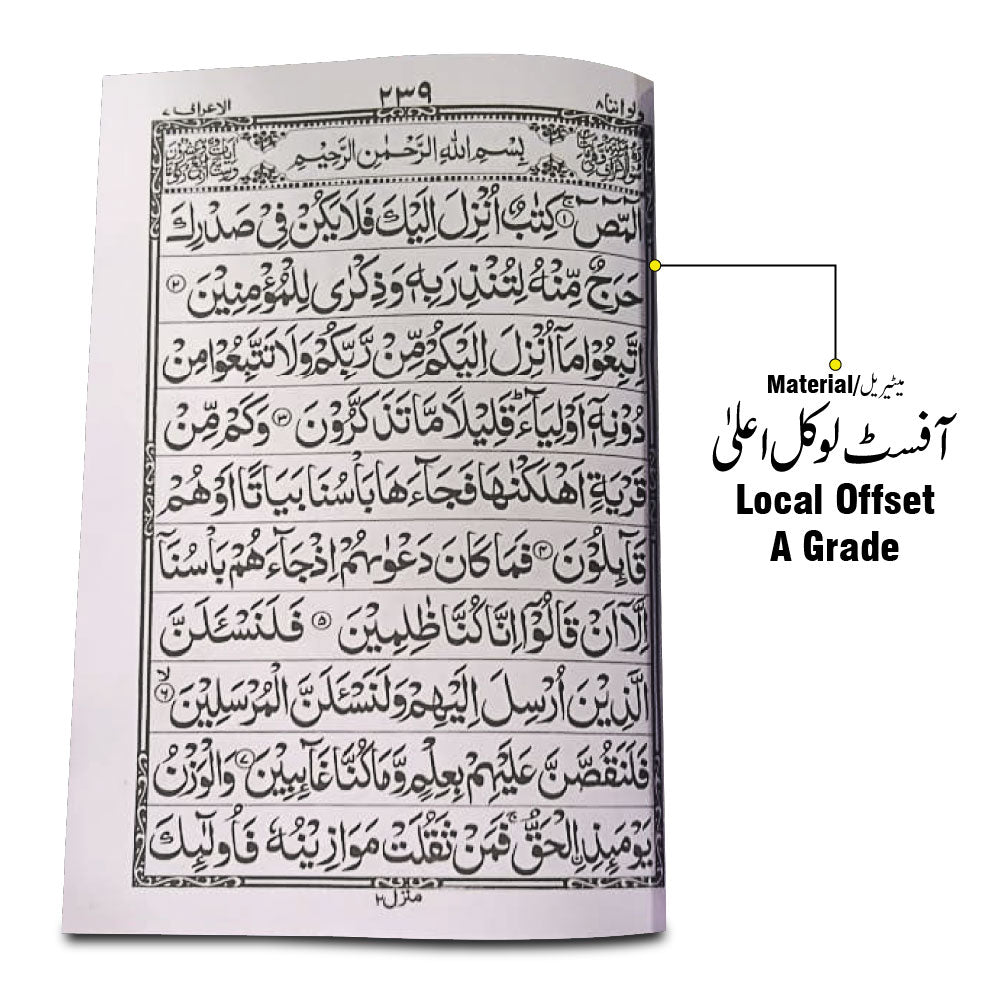 ولو اننا ٨ ٢٣٩ الاعراف ٧
بِسْمِ اللهِ الرَّحْمٰنِ الرَّحِيْمِ
الٓمّٓصٓ ۚ﴿١﴾ كِتٰبٌ اُنْزِلَ اِلَيْكَ فَلَا يَكُنْ فِيْ صَدْرِكَ
حَرَجٌ مِّنْهُ لِتُنْذِرَ بِهٖ وَذِكْرٰى لِلْمُؤْمِنِيْنَ ﴿٢﴾
اِتَّبِعُوْا مَاۤ اُنْزِلَ اِلَيْكُمْ مِّنْ رَّبِّكُمْ وَلَا تَتَّبِعُوْا مِنْ
دُوْنِهٖۤ اَوْلِيَآءَ ؕ قَلِيْلًا مَّا تَذَكَّرُوْنَ ﴿٣﴾ وَكَمْ مِّنْ
قَرْيَةٍ اَهْلَكْنٰهَا فَجَآءَهَا بَاْسُنَا بَيَاتًا اَوْ هُمْ
قَآئِلُوْنَ ﴿٤﴾ فَمَا كَانَ دَعْوٰىهُمْ اِذْ جَآءَهُمْ بَاْسُنَاۤ
اِلَّاۤ اَنْ قَالُوْۤا اِنَّا كُنَّا ظٰلِمِيْنَ ﴿٥﴾ فَلَنَسْـَٔلَنَّ
الَّذِيْنَ اُرْسِلَ اِلَيْهِمْ وَلَنَسْـَٔلَنَّ الْمُرْسَلِيْنَ ۙ﴿٦﴾
فَلَنَقُصَّنَّ عَلَيْهِمْ بِعِلْمٍ وَّمَا كُنَّا غَآئِبِيْنَ ﴿٧﴾ وَالْوَزْنُ
يَوْمَئِذِ ِۨالْحَقُّ ۚ فَمَنْ ثَقُلَتْ مَوَازِيْنُهٗ فَاُولٰٓئِكَ
منزل ٢
Material/میٹیریل
آفسٹ لوکل اعلیٰ
Local Offset
A Grade